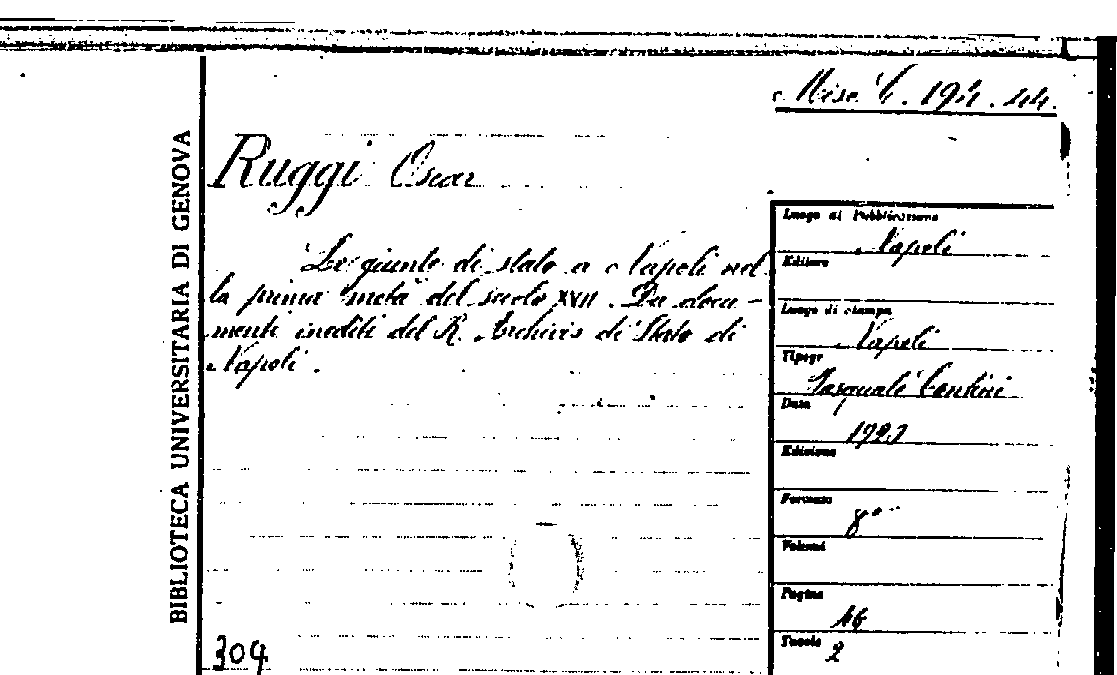 Misc. C. 194. 44.
BIBLIOTECA UNIVERSITARIA DI GENOVA
Ruggi Oscar
Le giunte di stato a Napoli nel
la prima metà del secolo XVII. Da docu-
menti inediti del R. Archivio di Stato di
Napoli.
Luogo di Pubblicazione
Napoli
Editore
Luogo di stampa
Napoli
Tipogr
Pasquale
Data
Edizione
Formato
8°
Volumi
Pagine
Tavole 2
304